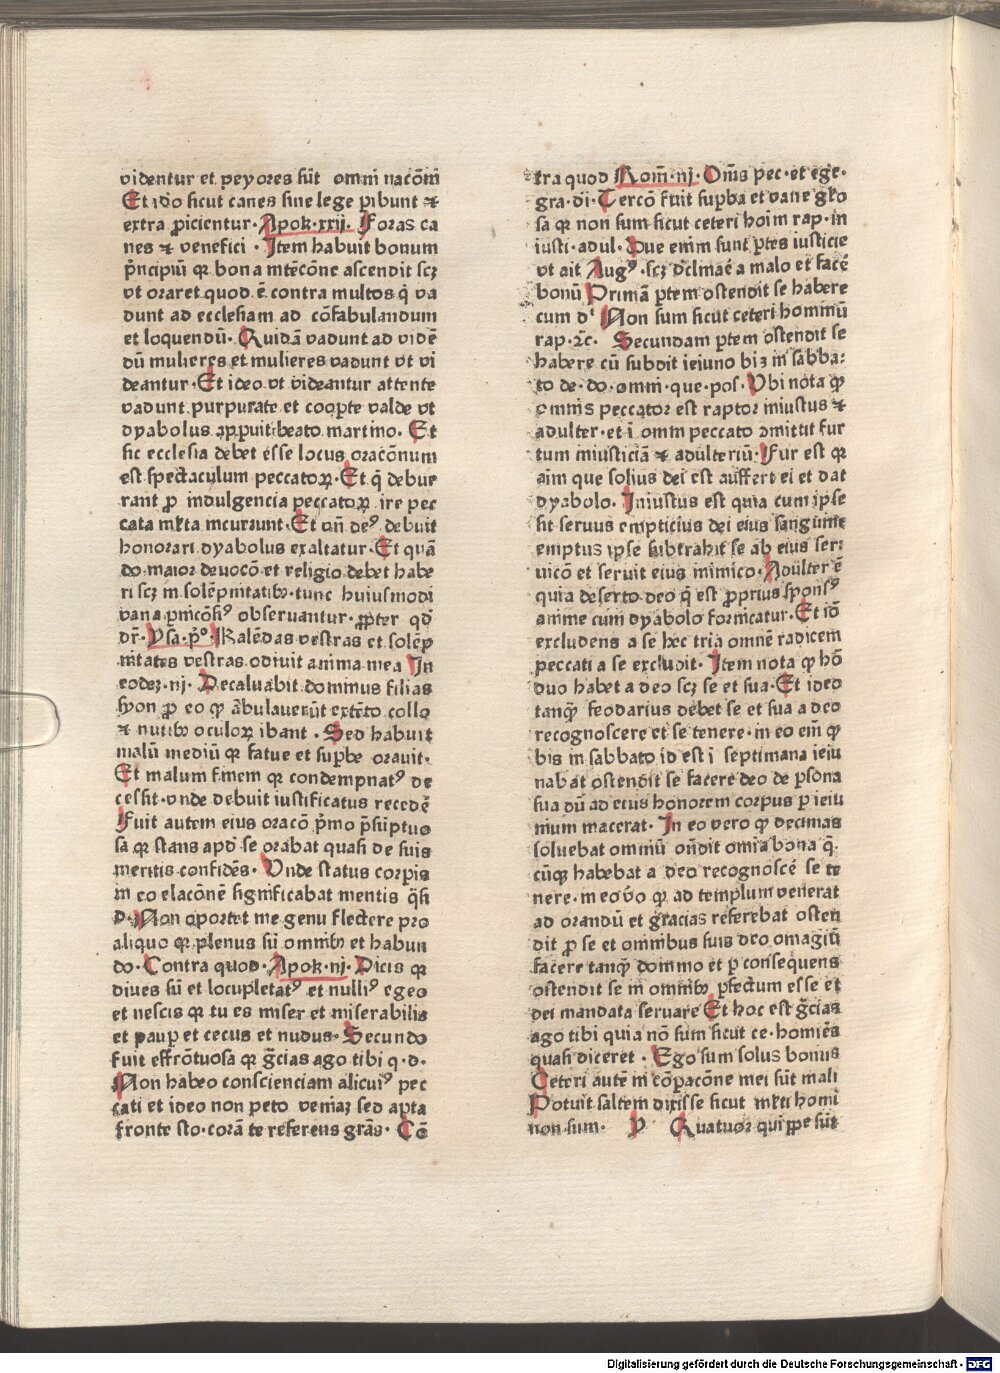 videntur et peyores sūt omni nacōni
Et ido sicut canes sine lege pibunt ⁊
extra ꝓicientur · Apok · xxij. Foras ca
nes ⁊ venefici · Item habuit bonum
pͥncipiū qꝛ bona intēcōne ascendit scꝫ
vt oraret quod ē contra multos qͥ va
dunt ad ecclesiam ad cōfabulandum
et loquendū · Quidā vadunt ad vidē
dū mulieres et mulieres vadunt vt vi
deantur · Et ideo vt videantur attente
vadunt purpurate et cooꝑte valde vt
dyabolus apꝑuit beato martino. Et
sic ecclesia debet esse locus oracōnum
est spectaculum peccatoꝝ · Et qͥ debue
rant ꝓ indulgencia peccatoꝝ ire pec
cata mͬta incurrunt · Et oñ deꝰ debuit
honorari dyabolus exaltatur · Et quā
do maior deuocō et religio debet habe
ri scꝫ in solēpnitatibꝫ · tunc huiusmodi
vana pnicōsiꝰ obseruantur · ꝓpter qd̄
dr̄ · Ysa · pͥº · Kalēdas vestras et solēp
nitates vestras odiuit anima mea In
eodeꝫ · iij · Decaluabit dominus filias
syon ꝓ eo ꝙ ābulauerūt extēto collo
⁊ nutibꝫ oculoꝝ ibant · Sed habuit
malū mediū qꝛ fatue et suꝑbe orauit ·
Et malum finem qꝛ condempnatꝰ de
cessit · vnde debuit iustificatus recedē
Fuit autem eius oracō pͥmo p̄sūptuo
sa qꝛ stans apd̓ se orabat quasi de suis
meritis confidēs · Unde status corpis
in eo elacōnē significabat mentis qͣsi
d · Non oportet me genu flectere pro
aliquo qꝛ plenus sū omnibꝫ et habun
do · Contra quod · Apok · iij · Dicis qꝛ
diues sū et locupletatꝰ et nulliꝰ egeo
et nescis qꝛ tu es miser et miserabilis
et pauꝑ et cecus et nudus · Secundo
fuit effrōtuosa qꝛ gͣcias ago tibi q · d ·
Non habeo conscienciam alicuiꝰ pec
cati et ideo non peto veniaꝫ sed apta
fronte sto · corā te referens grās · Cō
tra quod Rom̄ · iij · Om̄s pec · et ege ·
gra · di · Tercō fuit suꝑba et vane gl̓o
sa qꝛ non sum sicut ceteri hoim rap · in
iusti · adul · Due enim sunt ꝑtes iusticie
vt ait Augꝰ · scꝫ declinaē a malo et facē
bonū Primā ꝑtem ostendit se habere
cum dͭ Non sum sicut ceteri hominū
rap · ⁊c · Secundam ꝑtem ostendit se
habere cū subdit ieiuno bis in sabba ·
to de · do · omni · que · pos · Ubi nota ꝙ
omnis peccator est raptor iniustus ⁊
adulter · et ī omni peccato ꝯmittit fur
tum iniusticiā ⁊ adulteriū · Fur est qꝛ
aīam que solius dei est auffert ei et dat
dyabolo · Iniustus est quia cum ipse
sit seruus empticius dei eius sanguine
emptus ipse subtrahit se ab eius ser
uicō et seruit eius inimico · Adulter ē
quia deserto deo qͥ est ꝓprius sponsꝰ
anime cum dyabolo fornicatur · Et iō
excludens a se hec tria omnē radicem
peccati a se excludit · Item nota ꝙ hō
duo habet a deo scꝫ se et sua · Et ideo
tanqͣ feodarius debet se et sua a deo
recognoscere et se tenere · in eo enim ꝙ
bis in sabbato id est ī septimana ieiu
nabat ostendit se facere deo de ꝑsona
sua dū ad eius honorem corpus ꝑ ieiu
nium macerat · In eo vero ꝙ decimas
soluebat omniū ondit omīa bona q̄ ·
cūqꝫ habebat a deo recognoscē se te
nere · in eo vō ꝙ ad templum venerat
ad orandū et gracias referebat osten
dit ꝓ se et omnibus suis deo omagiū
facere tanqͣ domino et ꝑ consequens
ostendit se in omnibꝫ ꝑfectum esse et
dei mandata seruare Et hoc est gͣcias
ago tibi quia nō sum sicut ce · homiēs
quasi diceret · Ego sum solus bonus
Ceteri autē in cōꝑacōne mei sūt mali
Potuit saltem dixisse sicut mͬti homi
non sum · V Quatuor qui ꝓpe sūt
Digitalisierung gefördert durch die Deutsche Forschungsgemeinschaft - DFG